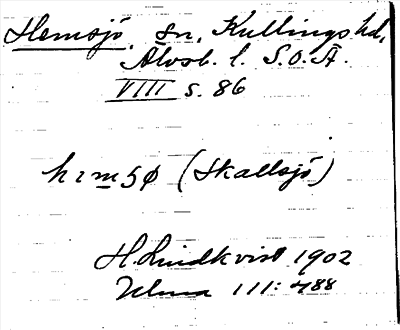 Hemsjö, sn, Kullings hd,
Älvsb. l. S.O.Ä.
VIII s. 86
hem5ø (Skallsjö)
H. Lindkvist 1902
Ulma 111: 488